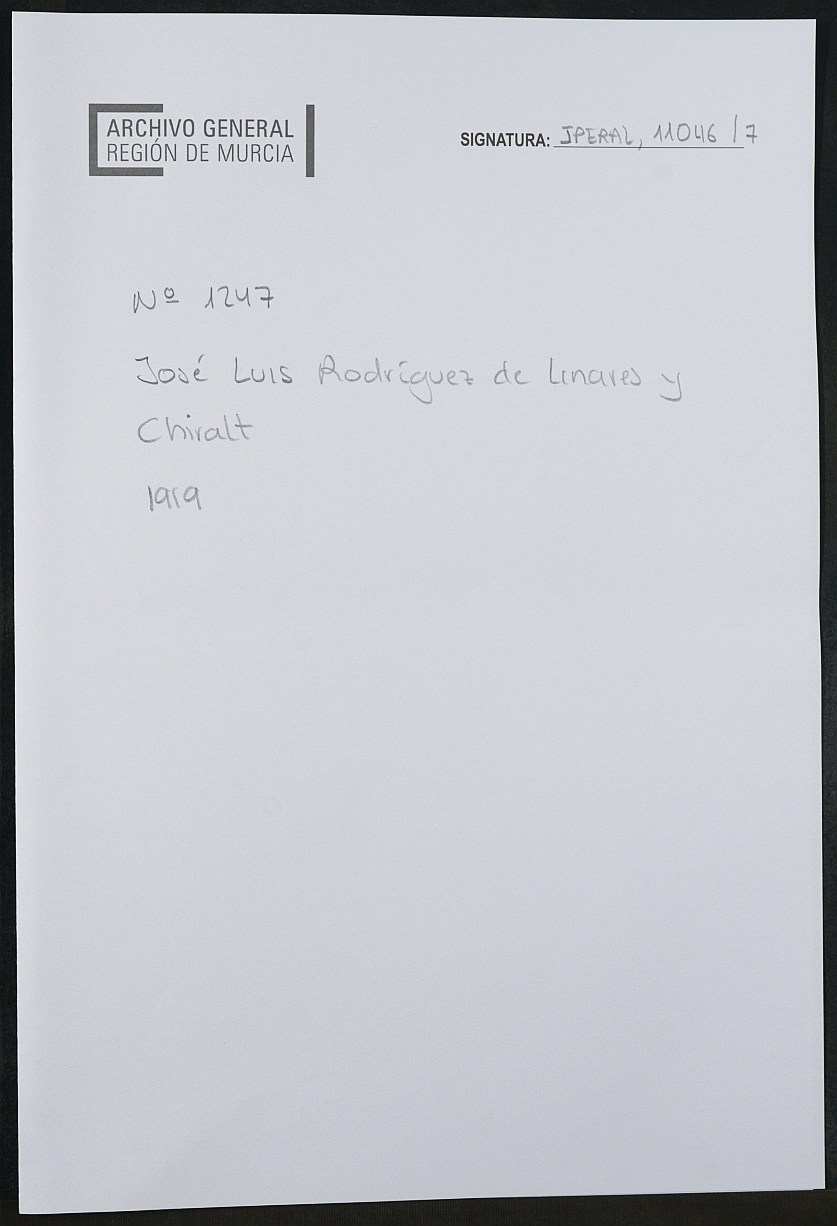 ARCHIVO GENERAL
REGIÓN DE MURCIA
SIGNATURA: JPERAL, 11046 / 7
Nº 1247
José Luis Rodríguez de Linares y
Chiralt
1919